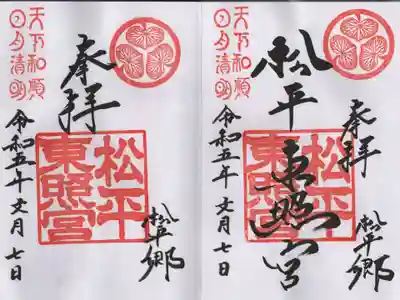 天下和順
日月清明
奉拝
松平
東照宮
令和五年文月七日
松平郷
天下和順
日月清明
松平東照宮
松平
東照宮
奉拝
令和五年文月七日
松平郷